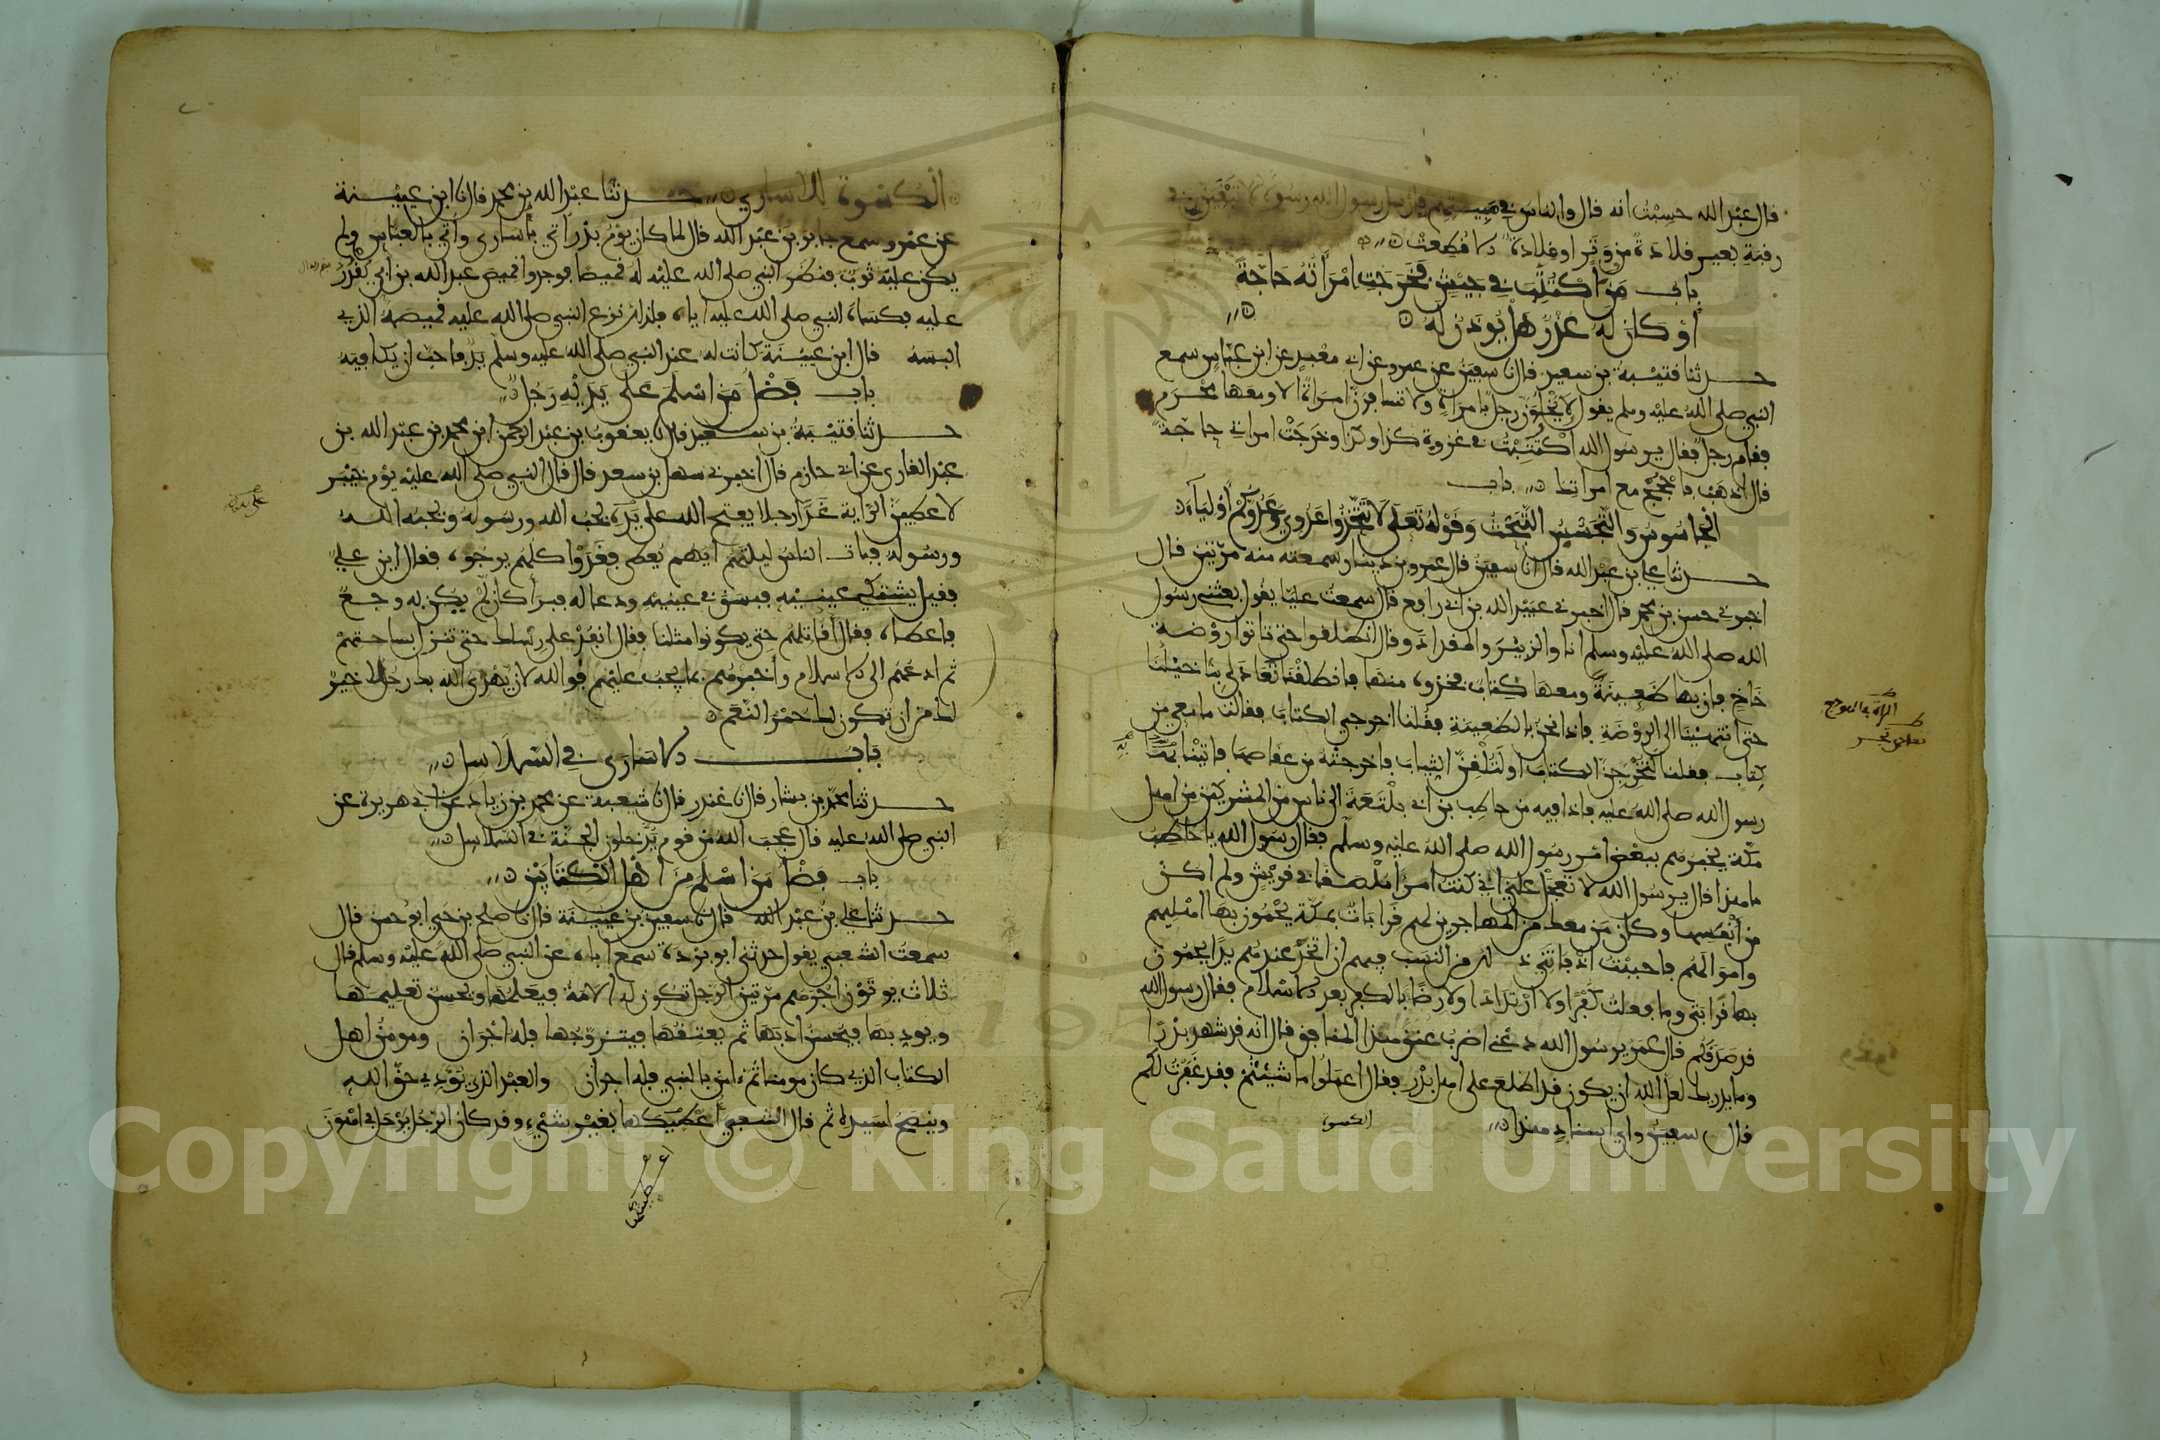 قال عبد الله حسبت انه قال والناس في مبيتهم فارسل رسول الله رسولا لا تبقين في
رقبة بعير قلادة من وتر او قلادة الا قطعت
باب من اكتتب في جيش فخرجت امراته حاجة
او كان له عذر هل يوذن له
حدثنا قتيبة بن سعيد قال نا سفين عن عمرو عن ابي معبد عن ابن عباس سمع
النبي صلى الله عليه وسلم يقول لا يخلون رجل بامراة ولا تسافرن امراة الا ومعها محرم
فقام رجل فقال يرسول الله اكتتبت في غزوة كذا وكذا وخرجت امراتي حاجة
قال اذهب فاحجج مع امراتك باب
الجاسوس والتجسس التبحث وقوله تعلى لا تتخذوا عدوي وعدوكم اولياء
حدثنا علي بن عبد الله قال نا سفين قال عمرو بن دينار سمعته منه مرتين قال
اخبرني حسن بن محمد قال اخبرني عبيد الله بن ابي رافع قال سمعت عليا يقول بعثني رسول
الله صلى الله عليه وسلم انا والزبير والمقداد وقال انطلقوا حتى تاتوا روضة
خاخ فان بها ظعينة ومعها كتاب فخذوه منها فانطلقنا تعادى بنا خيلنا
حتى انتهينا الى الروضة فاذا نحن بالظعينة فقلنا اخرجي الكتاب فقالت ما معي من
كتاب فقلنا لتخرجن الكتاب او لتلقن الثياب فاخرجته من عقاصها فاتينا بها
رسول الله صلى الله عليه فاذا فيه من حاطب بن ابي بلتعة الى ناس من المشركين من اهل
مكة يخبرهم ببعض امر رسول الله صلى الله عليه وسلم فقال رسول الله يا حاطب
ما هذا قال يرسول الله لا تعجل علي اني كنت امرا ملصقا في قريش ولم اكن
من انفسها وكان من معك من المهاجرين لهم قرابات بمكة يحمون بها اهليهم
واموالهم فاحببت اذ فاتني ذلك من النسب فيهم ان اتخذ عندهم يدا يحمون
بها قرابتي وما فعلت كفرا ولا ارتدادا ولا رضا بالكفر بعد الاسلام فقال رسول الله
قد صدقكم قال عمر يرسول الله دعني اضرب عنق هذا المنافق قال انه قد شهد بدرا
وما يدريك لعل الله ان يكون قد اطلع على اهل بدر فقال اعملوا ما شئتم فقد غفرت لكم
قال سفين واي اسناد هذا
الكسوة
الكسوة للاسارى حدثنا عبد الله بن محمد قال نا ابن عيينة
عن عمرو سمع جابر بن عبد الله قال لما كان يوم بدر اتي باسارى واتي بالعباس ولم
يكن عليه ثوب فنظر النبي صلى الله عليه له قميصا فوجدوا قميص عبد الله بن ابي يقدر
عليه فكساه النبي صلى الله عليه اياه فلذلك نزع النبي صلى الله عليه قميصه الذي
البسه قال ابن عيينة كانت له عند النبي صلى الله عليه وسلم يد فاحب ان يكافيه
باب فضل من اسلم على يديه رجل
حدثنا قتيبة بن سعيد قال نا يعقوب بن عبد الرحمن ابن محمد بن عبد الله بن
عبد القاري عن ابي حازم قال اخبرني سهل بن سعد قال قال النبي صلى الله عليه يوم خيبر
لاعطين الراية غدا رجلا يفتح الله على يديه يحب الله ورسوله ويحبه الله
ورسوله فبات الناس ليلتهم ايهم يعطى فغدوا كلهم يرجوه فقال اين علي
فقيل يشتكي عينيه فبسق في عينيه ودعا له فبرا كان لم يكن به وجع
فاعطاه فقال اقاتلهم حتى يكونوا مثلنا فقال انفذ على رسلك حتى تنزل بساحتهم
ثم ادعهم الى الاسلام واخبرهم بما يجب عليهم فوالله لان يهدي الله بك رجلا خير
لك من ان تكون لك حمر النعم
باب الاسارى في السلاسل
حدثنا محمد بن بشار قال نا غندر قال نا شعبة عن محمد بن زياد عن ابي هريرة عن
النبي صلى الله عليه قال عجب الله من قوم يدخلون الجنة في السلاسل
باب فضل من اسلم من اهل الكتابين
حدثنا علي بن عبد الله قال نا سفين بن عيينة قال نا صلح بن حي ابو حسن قال
سمعت الشعبي يقول حدثني ابو بردة سمع اباه عن النبي صلى الله عليه وسلم قال
ثلاث يوتون اجرهم مرتين الرجل تكون له الامة فيعلمها ويحسن تعليمها
ويودبها فيحسن ادبها ثم يعتقها فيتزوجها فله اجران ومومن اهل
الكتاب الذي كان مومنا ثم امن بالنبي فله اجران والعبد الذي يودي حق الله
وينصح لسيده ثم قال الشعبي اعطيتكها بغير شيء وقد كان الرجل يرحل في اهون
Copyright © King Saud University